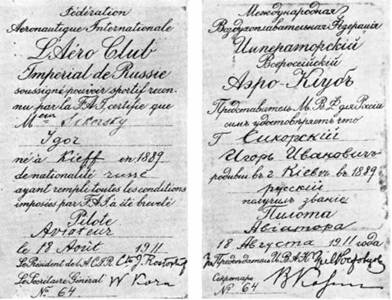 Fédération
Aéronautique Internationale
L'Aéro Club
Imperial de Russie
soussigné pouvoir sportif recon-
nu par la F.A.I. certifie que
Mᵉᵘʳ Sikorsky
Igor
né à Kieff en 1889
de nationalité russe
ayant remplie toutes les conditions
imposées par F.A.I. a été breveté
Pilote
Aviateur
le 18 Août 1911
Le President de l'A.C.I.R.
Le Secrétaire Général
No 64
Международная
Воздухоплавательная Федерація
Императорскій
Всероссійскій
Аэро-Клубъ
Представитель М.В.Ф. для Россіи
симъ удостовѣряетъ что
Г Сикорскій
Игорь Ивановичъ
родивш въ г. Кіевѣ въ 1889
русскій
получилъ званіе
Пилота
Авіатора
18 Августа 1911 года
Предсѣдатель И.В.А.К.
Секретарь
No 64